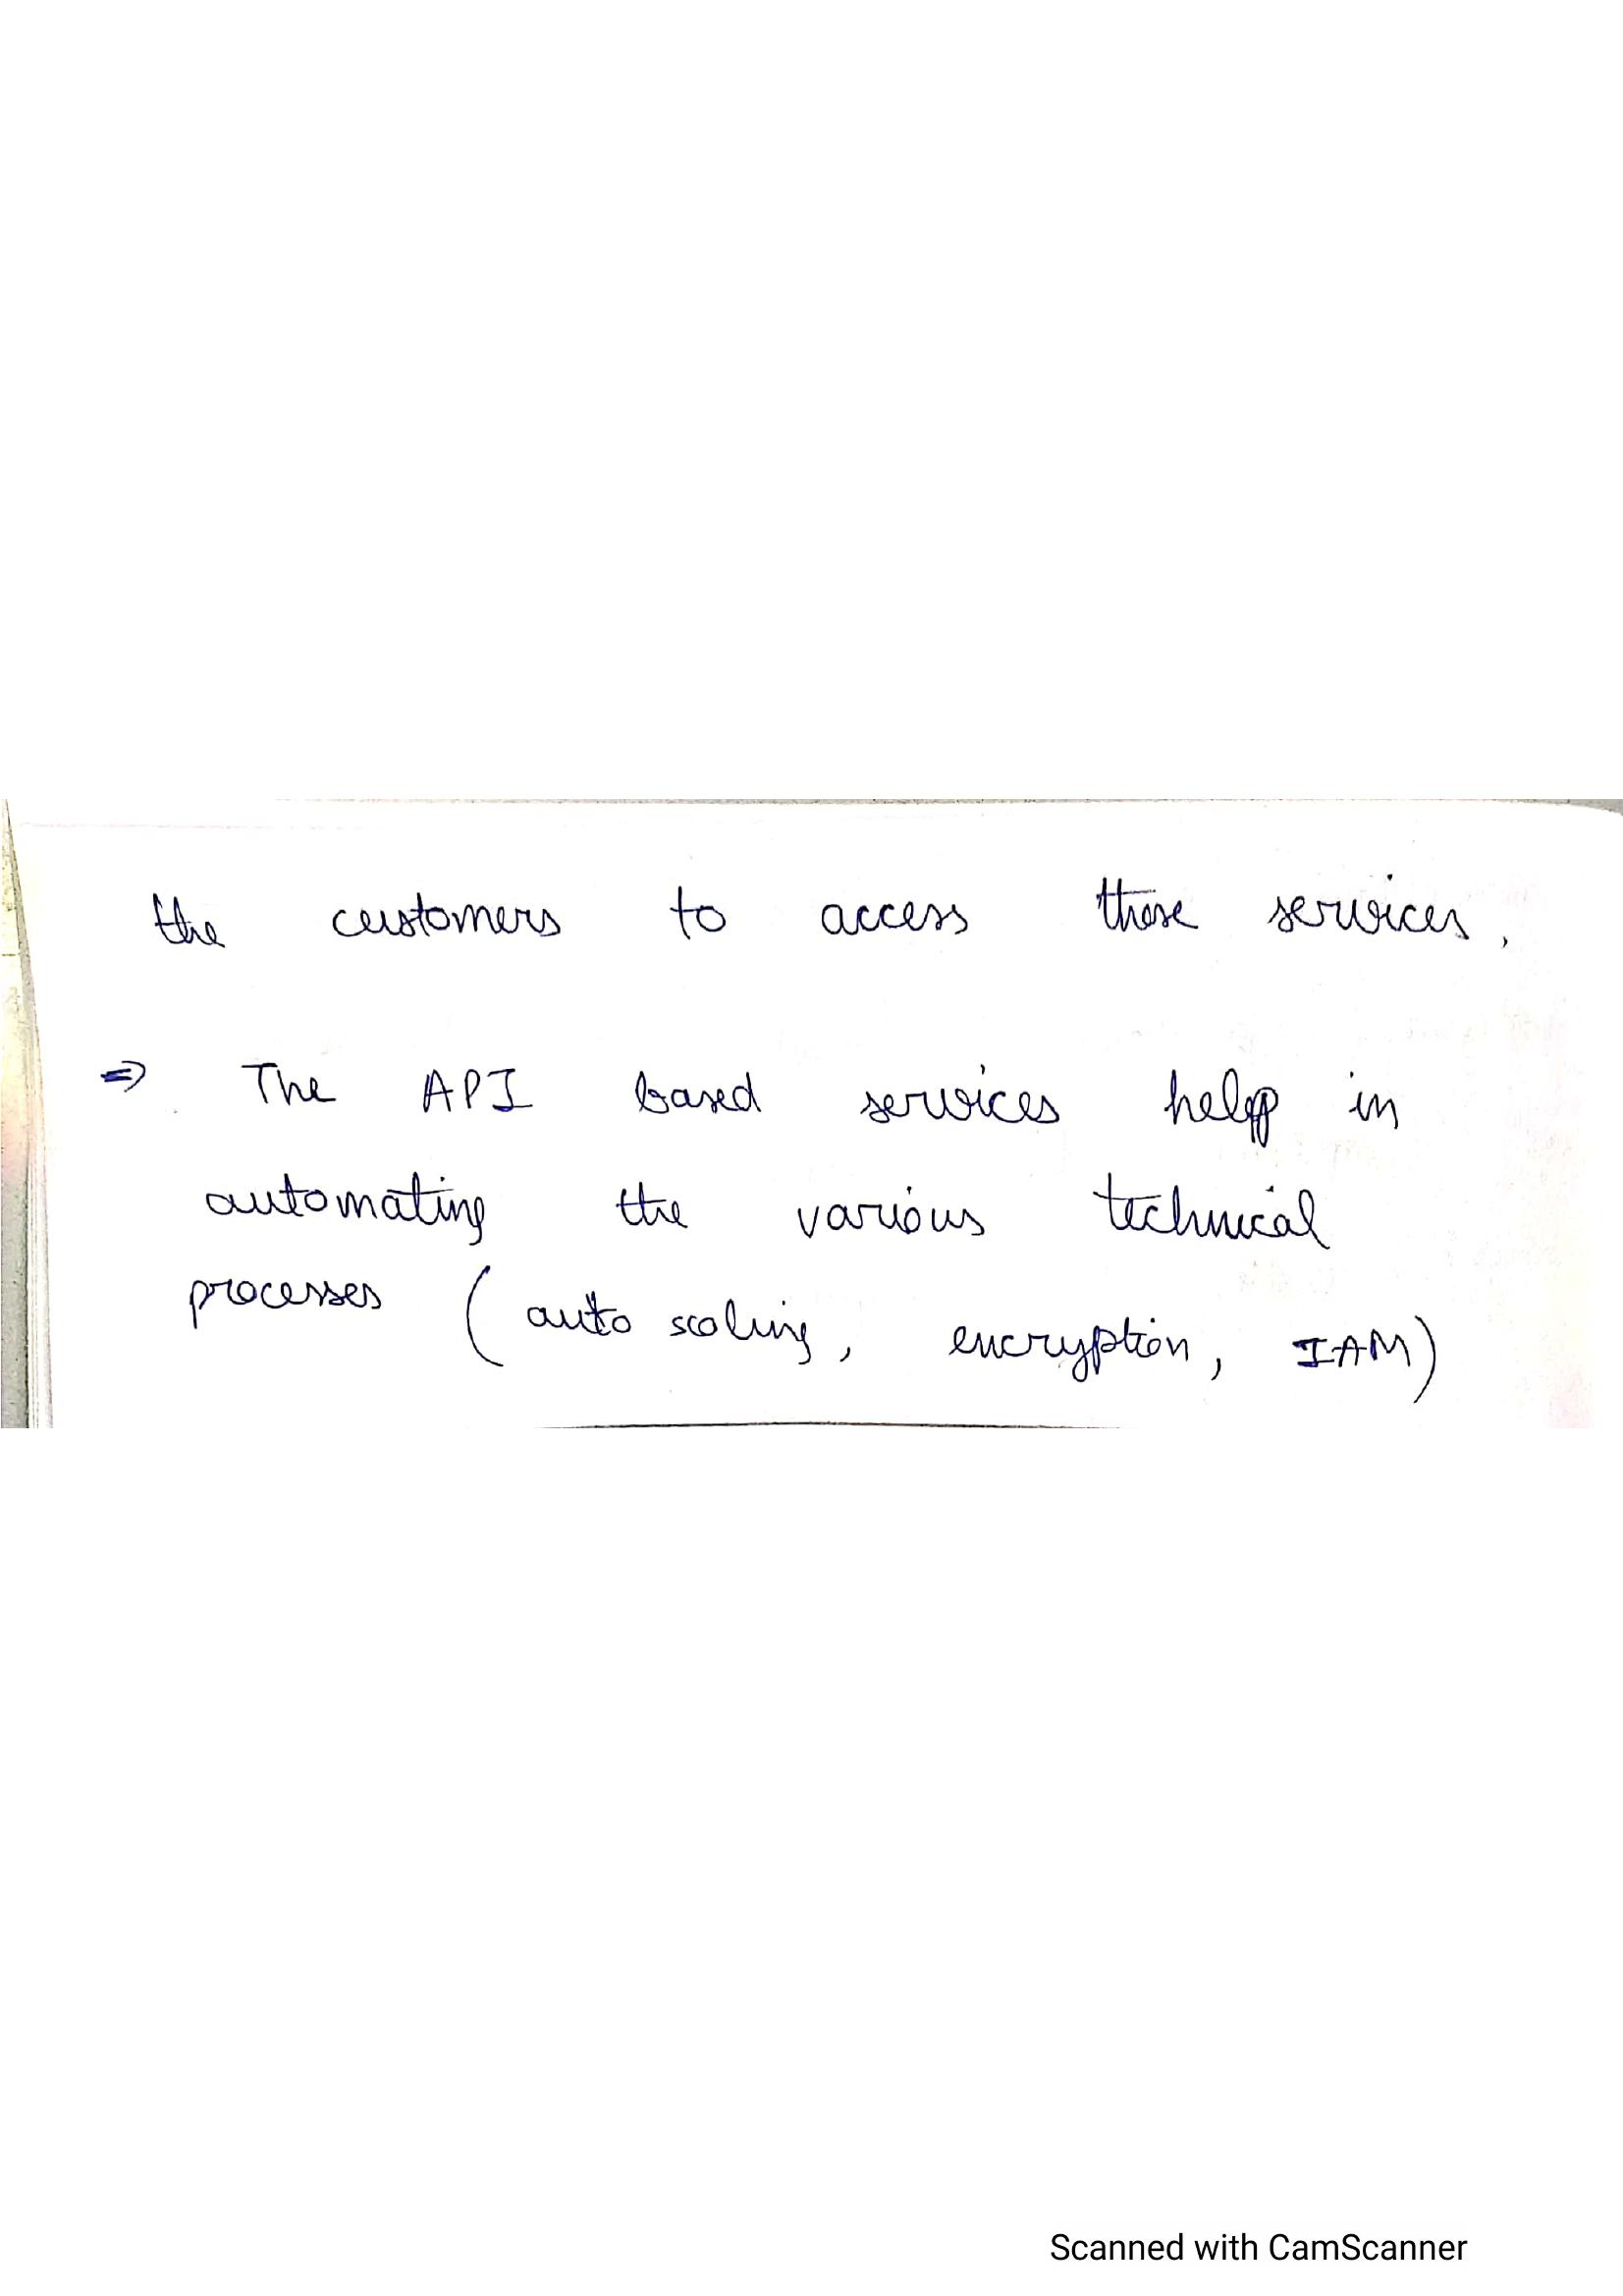 the customers to access those services,
⇒ The API based services help in
automating the various technical
processes (auto scaling, encryption, IAM)
Scanned with CamScanner